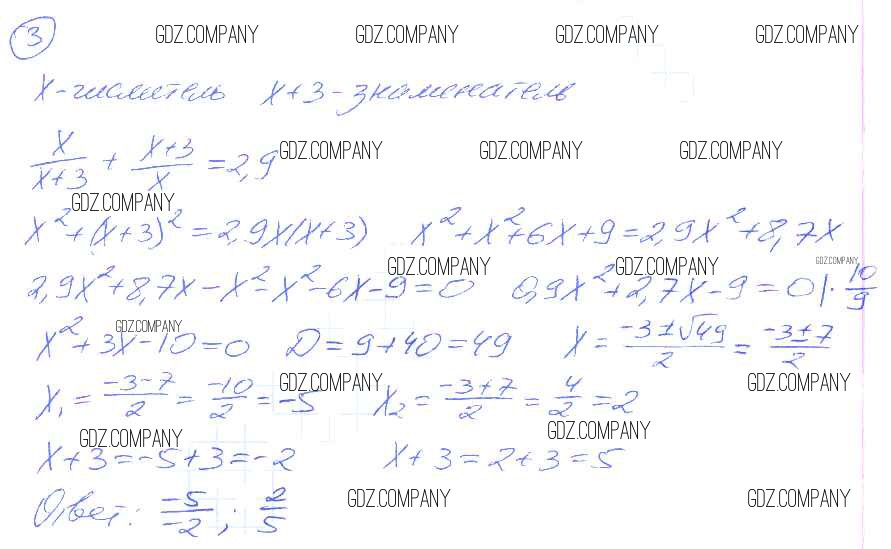 3 GDZ.COMPANY GDZ.COMPANY GDZ.COMPANY GDZ.COMPANY
x-числитель x+3-знаменатель
x/(x+3) + (x+3)/x = 2,9 GDZ.COMPANY GDZ.COMPANY GDZ.COMPANY
GDZ.COMPANY
x²+(x+3)²=2,9x(x+3) x²+x²+6x+9=2,9x²+8,7x
GDZ.COMPANY GDZ.COMPANY GDZ.COMPANY
2,9x²+8,7x-x²-x²-6x-9=0 0,9x²+2,7x-9=0 |·10/9
GDZ.COMPANY
x²+3x-10=0 D=9+40=49 x=(-3±√49)/2=(-3±7)/2
x₁=(-3-7)/2=-10/2=-5 GDZ.COMPANY x₂=(-3+7)/2=4/2=2 GDZ.COMPANY
GDZ.COMPANY GDZ.COMPANY
x+3=-5+3=-2 x+3=2+3=5
Ответ: -5/-2; 2/5 GDZ.COMPANY GDZ.COMPANY